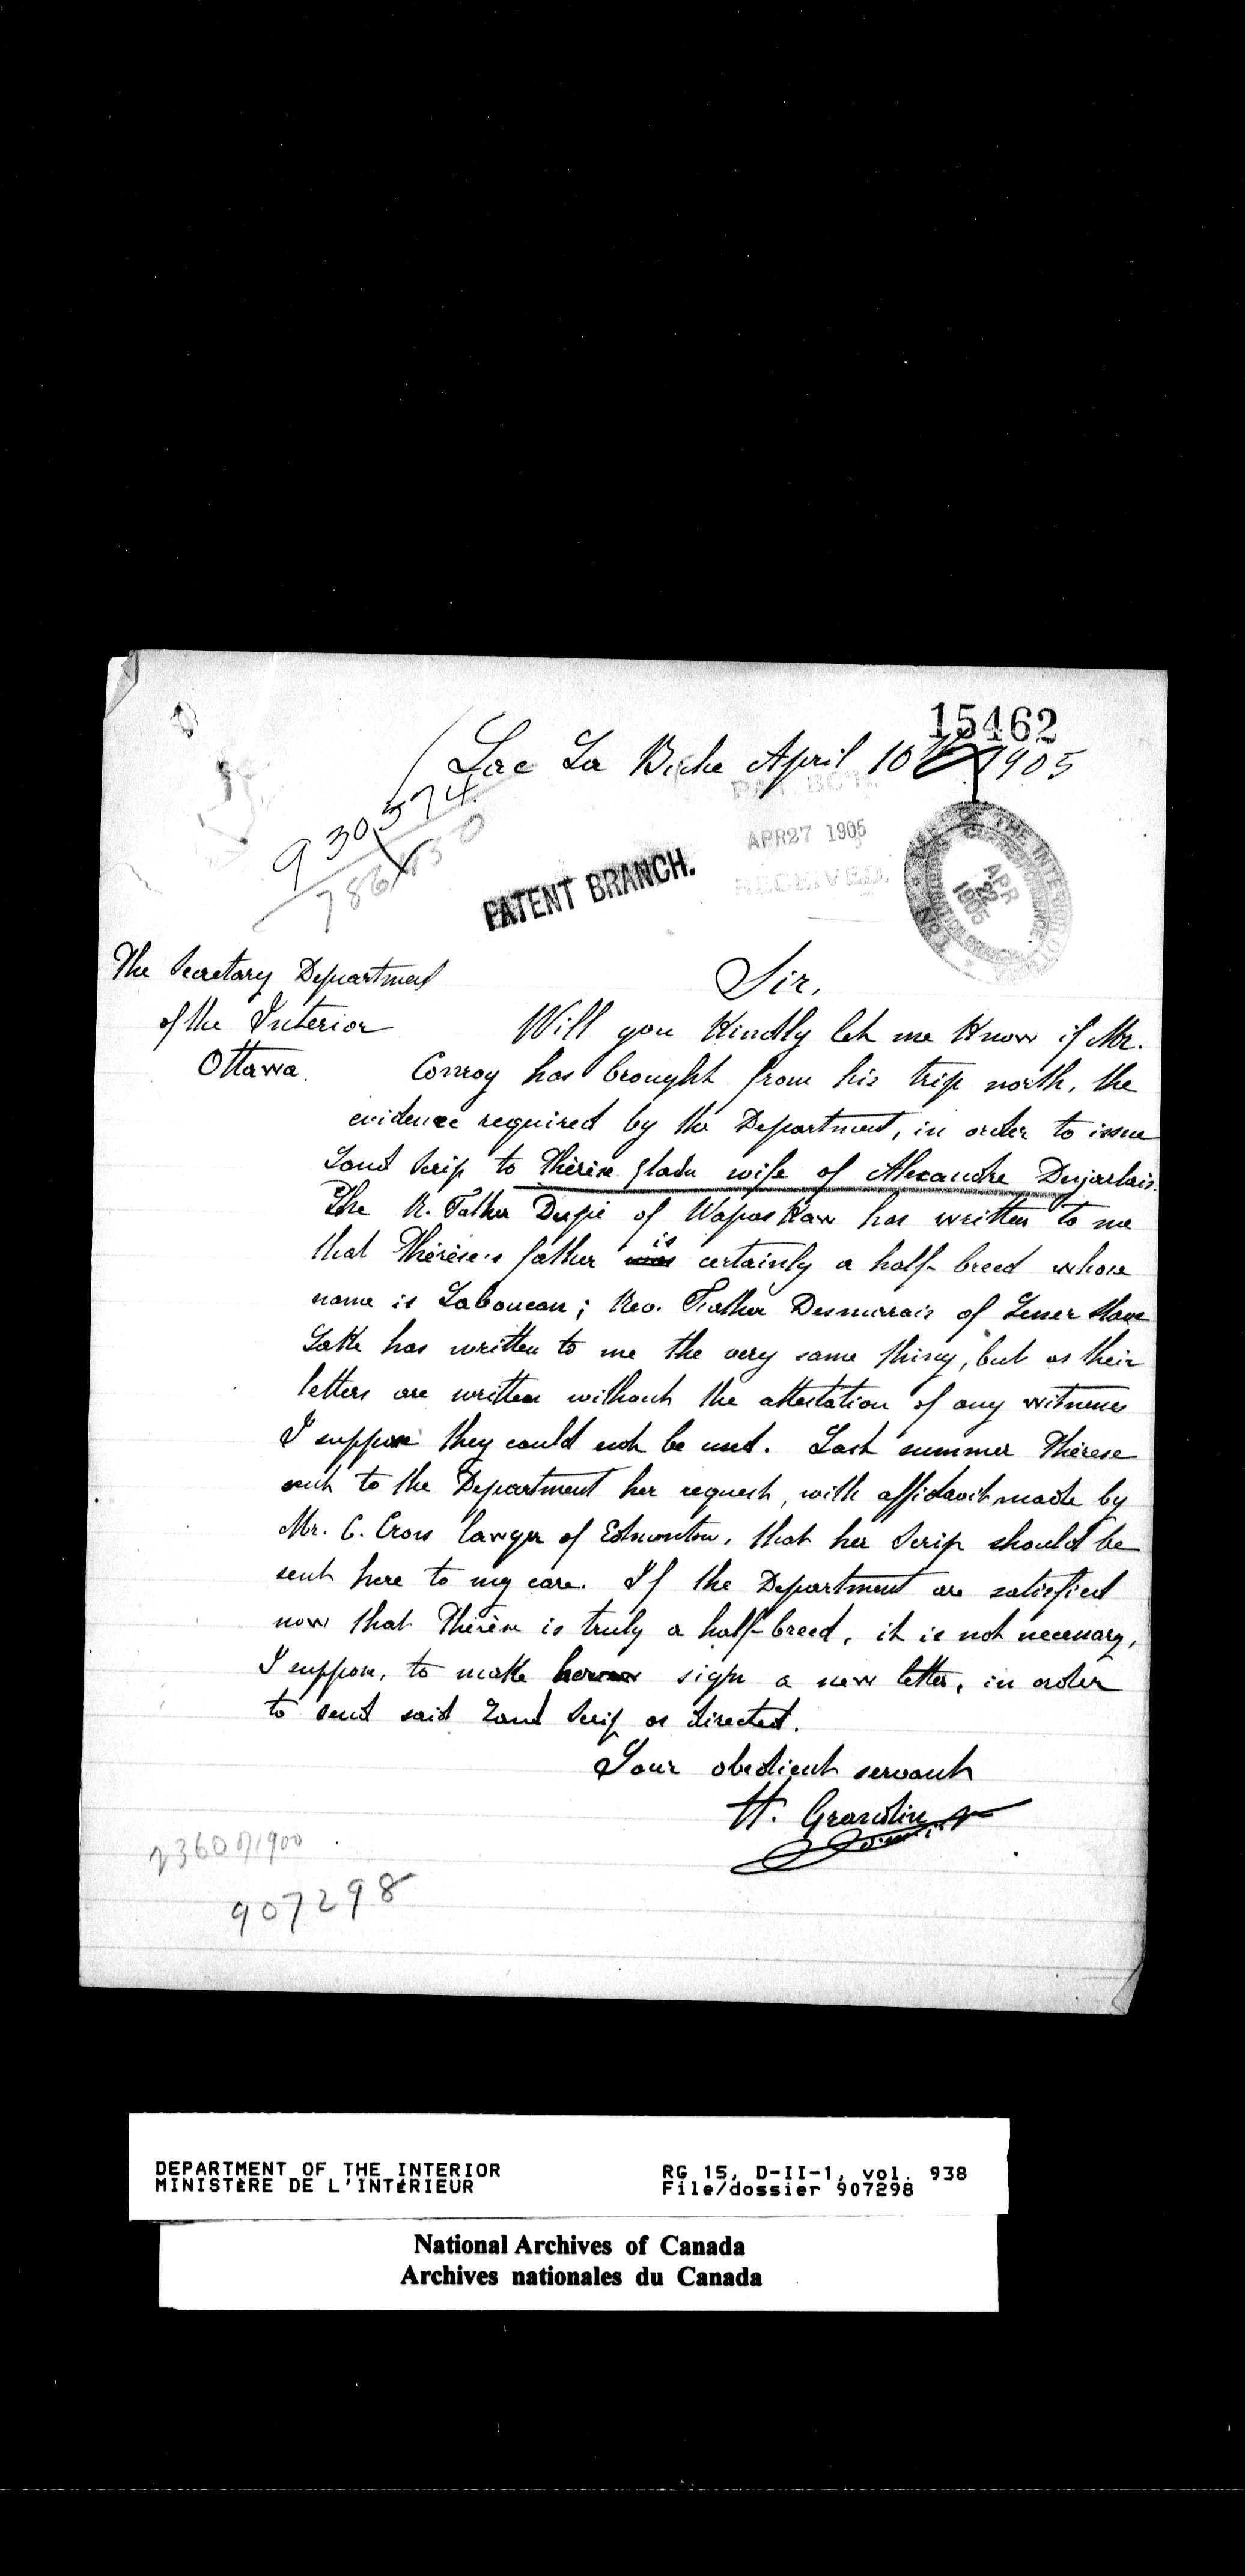 15462
Lac La Biche April 10th 1905
930574
786450
APR 27 1905
RECEIVED.
PATENT BRANCH.
APR
22
1905
The Secretary Department
of the Interior
Ottawa.
Sir,
Will you Kindly let me Know if Mr.
Conroy has brought from his trip north, the
evidence required by the Department, in order to issue
Land Scrip to Thérèse Gladu wife of Alexandre Dejarlais.
The R. Father Dupé of Wapas Kaw has written to me
that Thérèse's father was is certainly a half-breed whose
name is Laboucan; Rev. Father Desmarrais of Lesser Slave
Lake has written to me the very same thing, but as their
letters are written without the attestation of any witness
I suppose they could not be used. Last summer Thérese
sent to the Department her request, with affidavit made by
Mr. C. Cross lawyer of Edmonton, that her Scrip should be
sent here to my care. If the Department are satisfied
now that Thérèse is truly a half-breed, it is not necessary,
I suppose, to make her sign a new letter, in order
to send said Land Scrip as directed.
Your obedient servant
H. Grandin
236051/1900
907298
DEPARTMENT OF THE INTERIOR
MINISTÈRE DE L'INTÉRIEUR
RG 15, D-II-1, vol. 938
File/dossier 907298
National Archives of Canada
Archives nationales du Canada